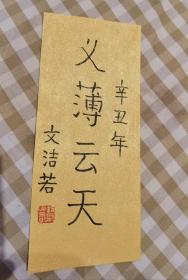 辛丑年
义薄云天
文洁若